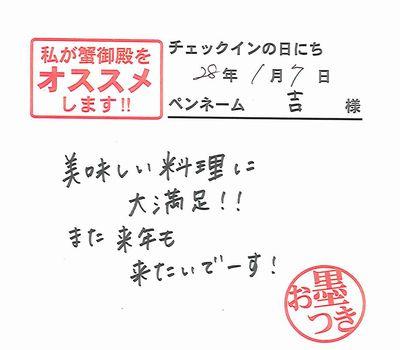 私が蟹御殿を
オススメ
します!!
チェックインの日にち
28年1月7日
ペンネーム 吉 様
美味しい料理に
大満足!!
また来年も
来たいでーす!
お墨つき